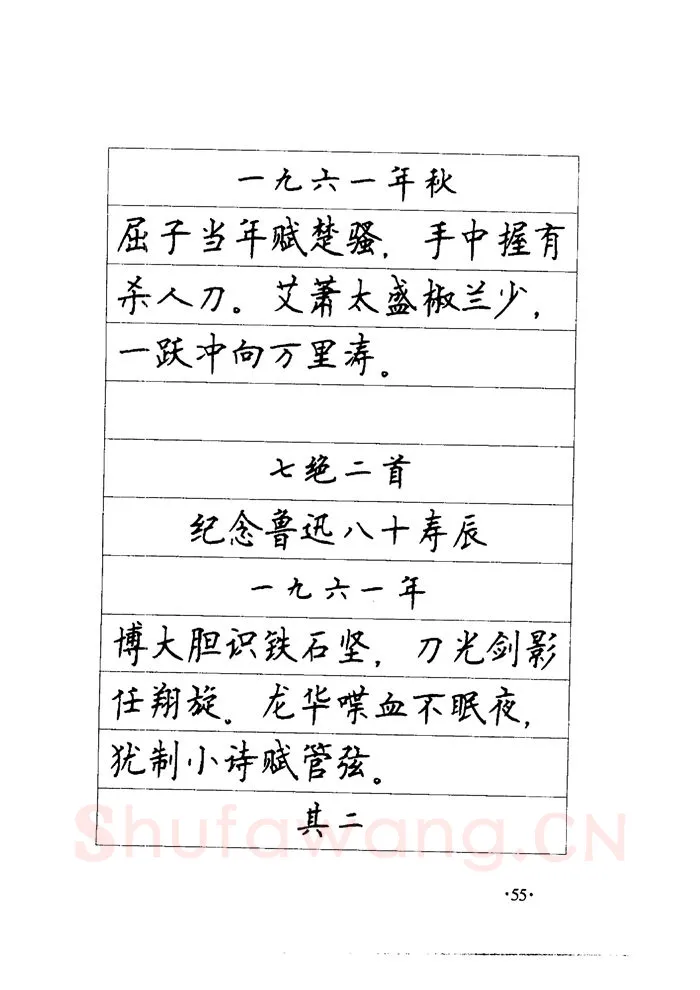 一九六一年秋
屈子当年赋楚骚，手中握有
杀人刀。艾萧太盛椒兰少，
一跃冲向万里涛。
七绝二首
纪念鲁迅八十寿辰
一九六一年
博大胆识铁石坚，刀光剑影
任翔旋。龙华喋血不眠夜，
犹制小诗赋管弦。
其二
Shufawang.CN
·55·